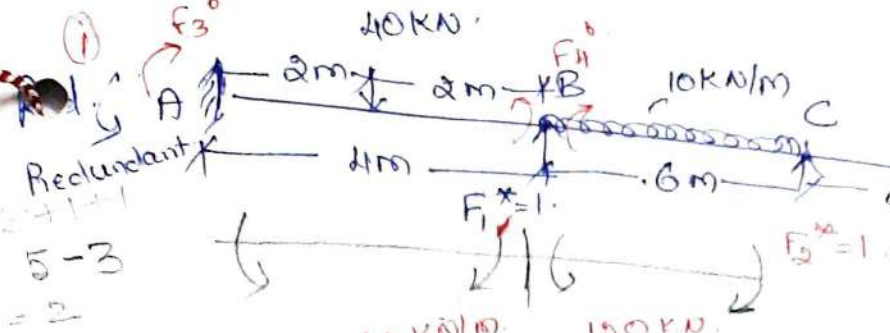 F3°
40KN.
(i)
F4°
2m 2m B 10KN/m
A C
Redundant
4m 6m
F1*=1.
F2*=1
5-3
= 2